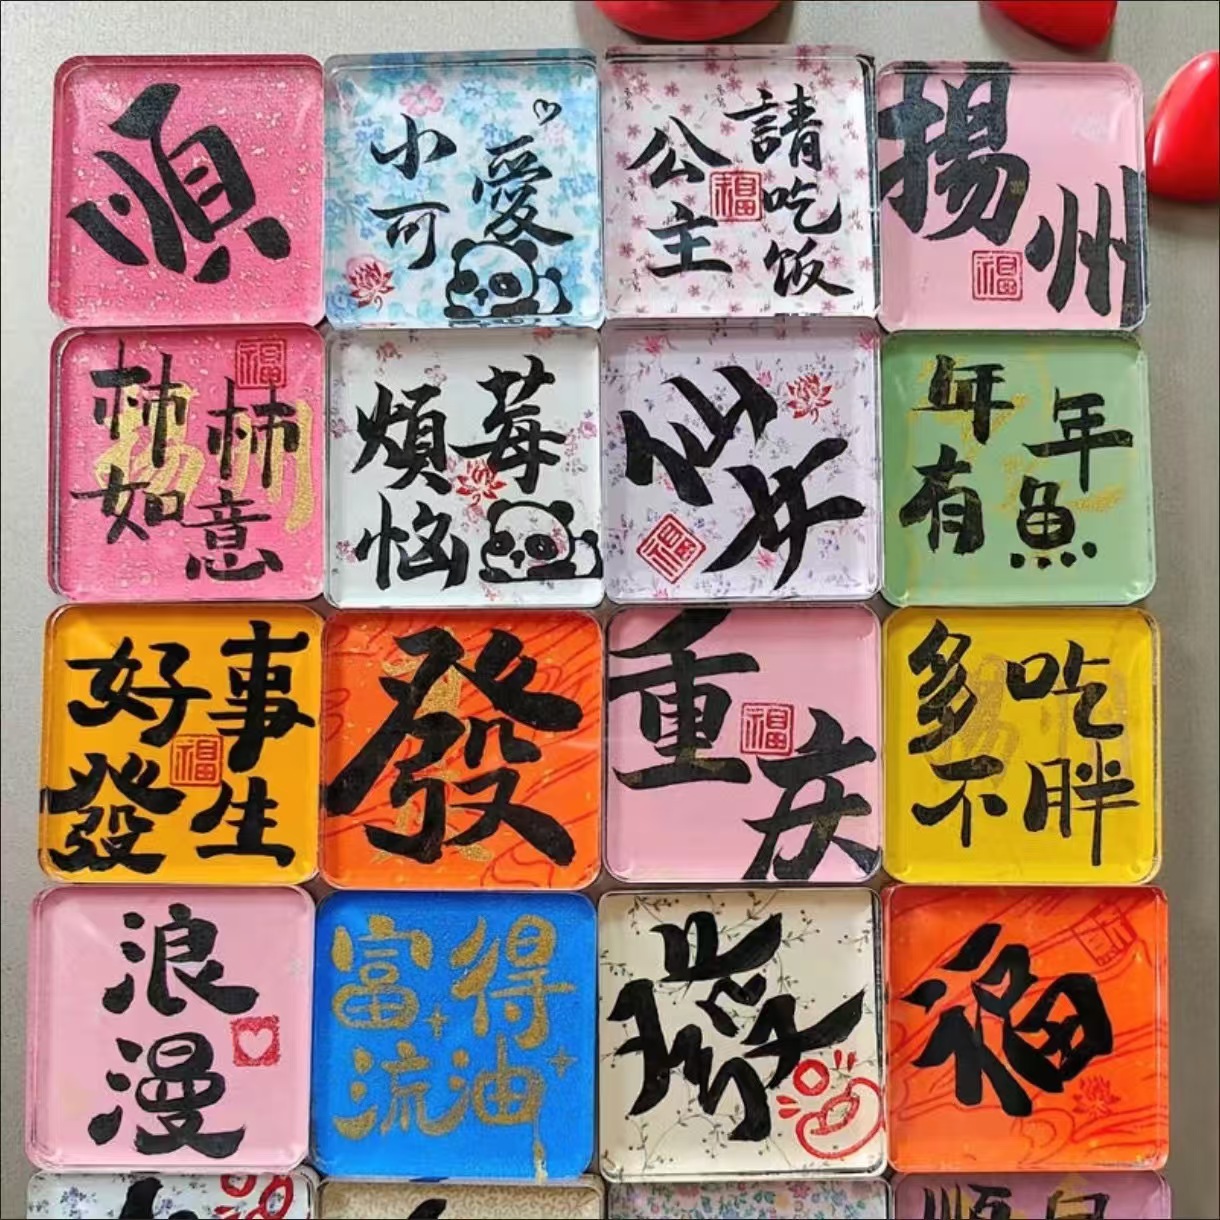 順
小可愛
公主請吃饭
福
揚州
福
柿柿如意
福
揚州
莓煩恼
福
年年有魚
好事發生
福
發
重庆
福
多吃不胖
浪漫
富得流油
發
福